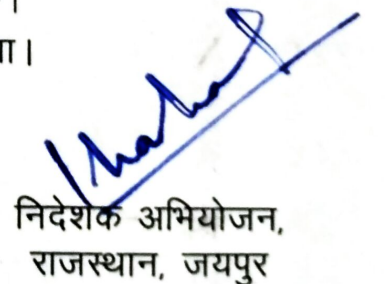 ।
ा।
निदेशक अभियोजन,
राजस्थान, जयपुर